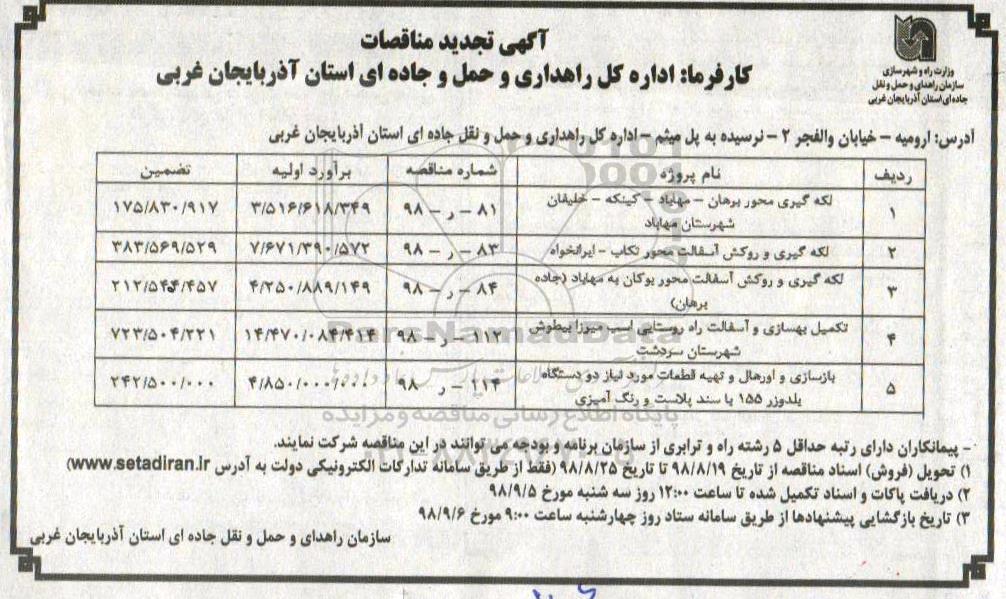 وزارت راه و شهرسازی
سازمان راهداری و حمل و نقل
جاده ای استان آذربایجان غربی
آگهی تجدید مناقصات
کارفرما: اداره کل راهداری و حمل و جاده ای استان آذربایجان غربی
آدرس: ارومیه – خیابان والفجر ۲ – نرسیده به پل میثم – اداره کل راهداری و حمل و نقل جاده ای استان آذربایجان غربی
ردیف نام پروژه شماره مناقصه برآورد اولیه تضمین
۱ لکه گیری محور برهان – مهاباد – کیتکه – خلیفان شهرستان مهاباد ۸۱ – ر – ۹۸ ۳/۵۱۶/۶۱۸/۳۴۹ ۱۷۵/۸۳۰/۹۱۷
۲ لکه گیری و روکش آسفالت محور تکاب – ایرانخواه ۸۳ – ر – ۹۸ ۷/۶۷۱/۳۹۰/۵۷۲ ۳۸۳/۵۶۹/۵۲۹
۳ لکه گیری و روکش آسفالت محور بوکان به مهاباد (جاده برهان) ۸۴ – ر – ۹۸ ۴/۲۵۰/۸۸۹/۱۴۹ ۲۱۲/۵۴۴/۴۵۷
۴ تکمیل بهسازی و آسفالت راه روستایی اسب میرزا بیطوش شهرستان سردشت ۱۱۲ – ر – ۹۸ ۱۴/۴۷۰/۰۸۴/۴۱۴ ۷۲۳/۵۰۴/۲۲۱
۵ بازسازی و اورهال و تهیه قطعات مورد نیاز دو دستگاه بلدوزر ۱۵۵ با سند پلاست و رنگ آمیزی ۱۱۴ – ر – ۹۸ ۴/۸۵۰/۰۰۰/۰۰۰ ۲۴۲/۵۰۰/۰۰۰
ParsNamadData
پایگاه اطلاع رسانی مناقصه و مزایده
– پیمانکاران دارای رتبه حداقل ۵ رشته راه و ترابری از سازمان برنامه و بودجه می توانند در این مناقصه شرکت نمایند.
۱) تحویل (فروش) اسناد مناقصه از تاریخ ۹۸/۸/۱۹ تا تاریخ ۹۸/۸/۲۵ (فقط از طریق سامانه تدارکات الکترونیکی دولت به آدرس www.setadiran.ir)
۲) دریافت پاکات و اسناد تکمیل شده تا ساعت ۱۲:۰۰ روز سه شنبه مورخ ۹۸/۹/۵
۳) تاریخ بازگشایی پیشنهادها از طریق سامانه ستاد روز چهارشنبه ساعت ۹:۰۰ مورخ ۹۸/۹/۶
سازمان راهدای و حمل و نقل جاده ای استان آذربایجان غربی